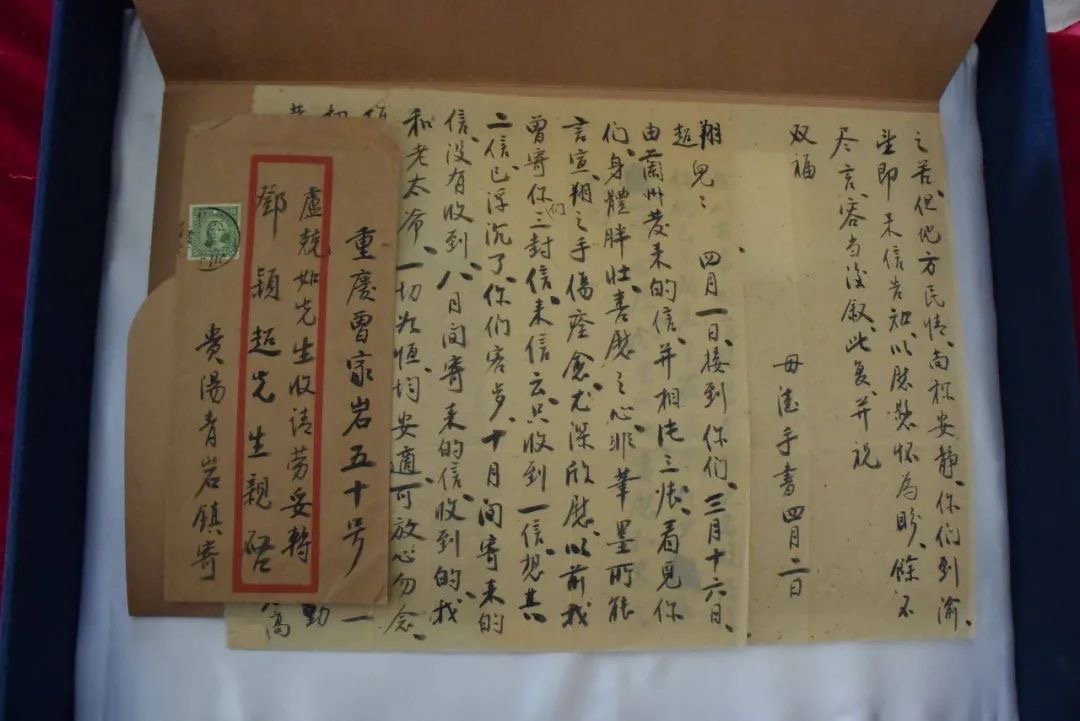 重慶曾家岩五十号
盧競如先生收請勞妥轉
鄧穎超先生親啓
貴陽青岩鎮寄
翔超兒：四月一日、接到你们、三月十六日、
由蘭州发来的信、并相片三张、看見你
们、身體胖壯、喜慰之心、非筆墨所能
言宣、翔之手傷痊愈尤深欣慰、以前我
曾寄你们三封信、来信云、只收到一信、想其
二信、已浮沉了、你们客岁、十月间寄来的
信、没有收到、八月间寄来的信、收到的、我
和老太爷、一切如恒、均安適、可放心勿念、
之苦、但地方民情、尚称安静、你们到渝、
望即来信告知、以慰愁怀為盼、餘不
尽言、容当後叙、此复、并祝
双福
母德手書四月二日